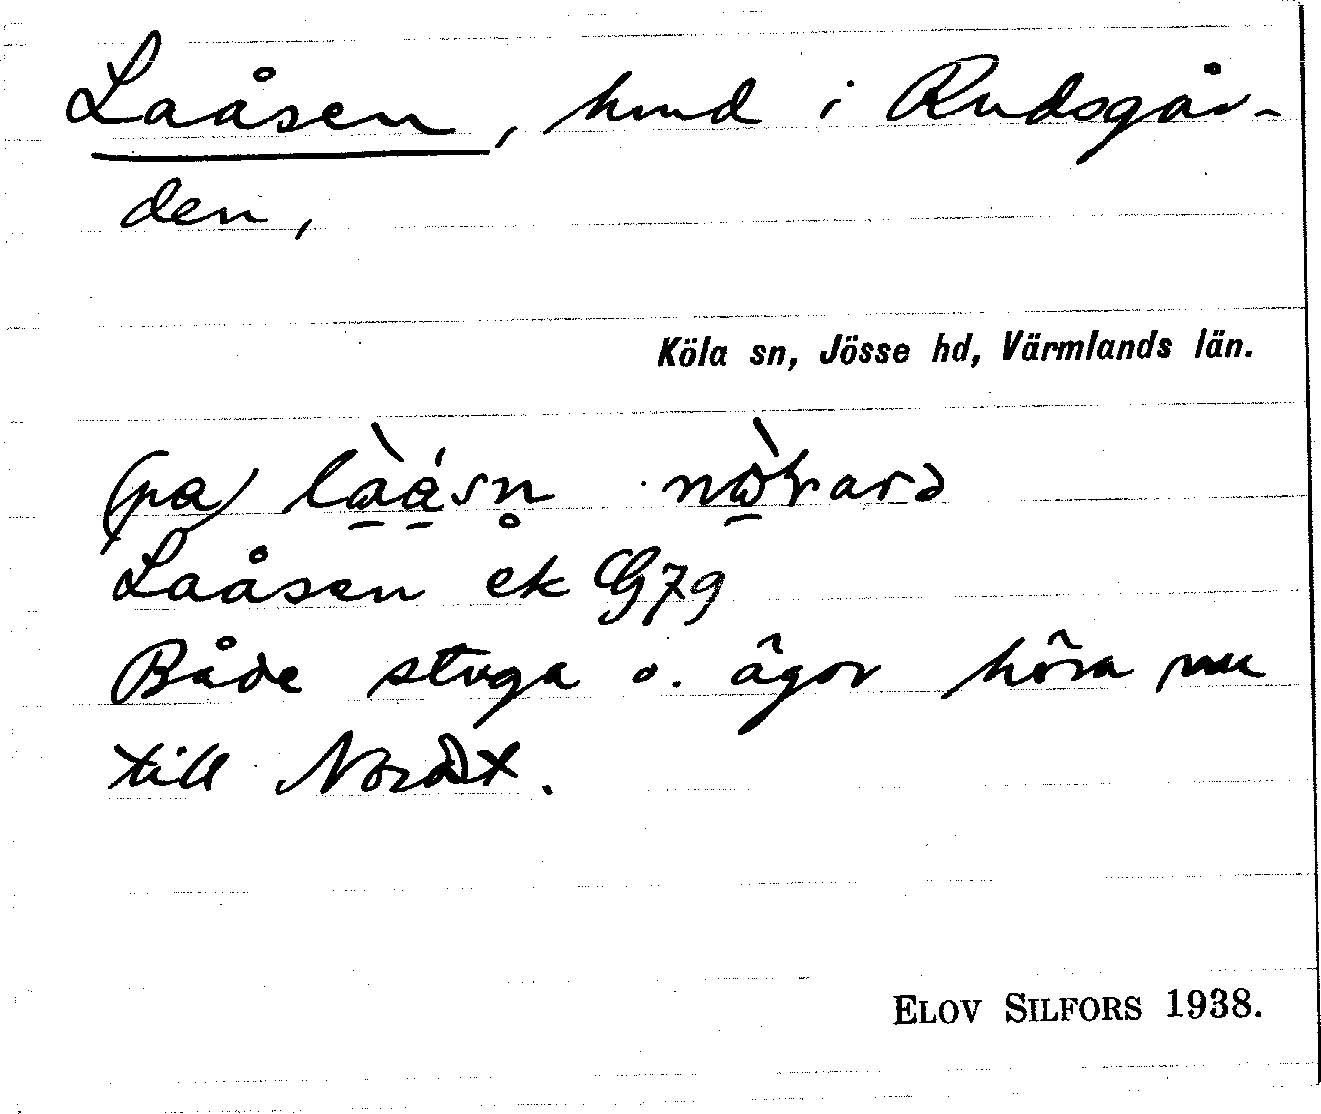 Laåsen, hmd i Rudsgår-
den,
Köla sn, Jösse hd, Värmlands län.
(pa)
Laåsen ek G79
Både stuga o. ägor höra nu
till Nordt.
ELOV SILFORS 1938.